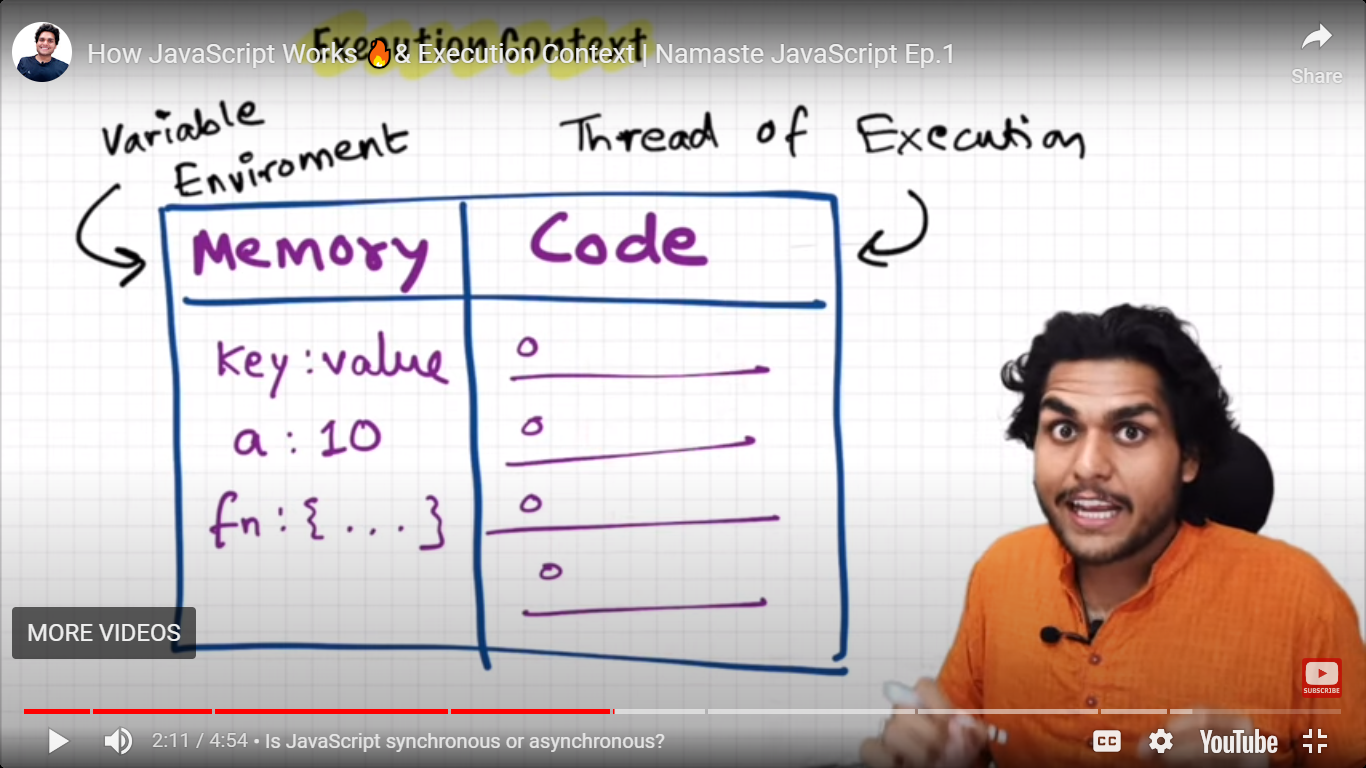 Execution Context
How JavaScript Works 🔥& Execution Context | Namaste JavaScript Ep.1
Share
Variable
Enviroment
Thread of Execution
Memory
Code
key : value
a : 10
fn : { ... }
MORE VIDEOS
SUBSCRIBE
2:11 / 4:54 • Is JavaScript synchronous or asynchronous?
CC
YouTube